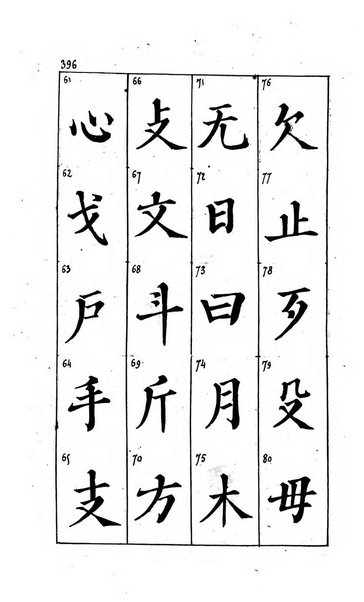 396
61 66 71 76
心 攴 无 欠
62 67 72 77
戈 文 日 止
63 68 73 78
戸 斗 曰 歹
64 69 74 79
手 斤 月 殳
65 70 75 80
支 方 木 毋